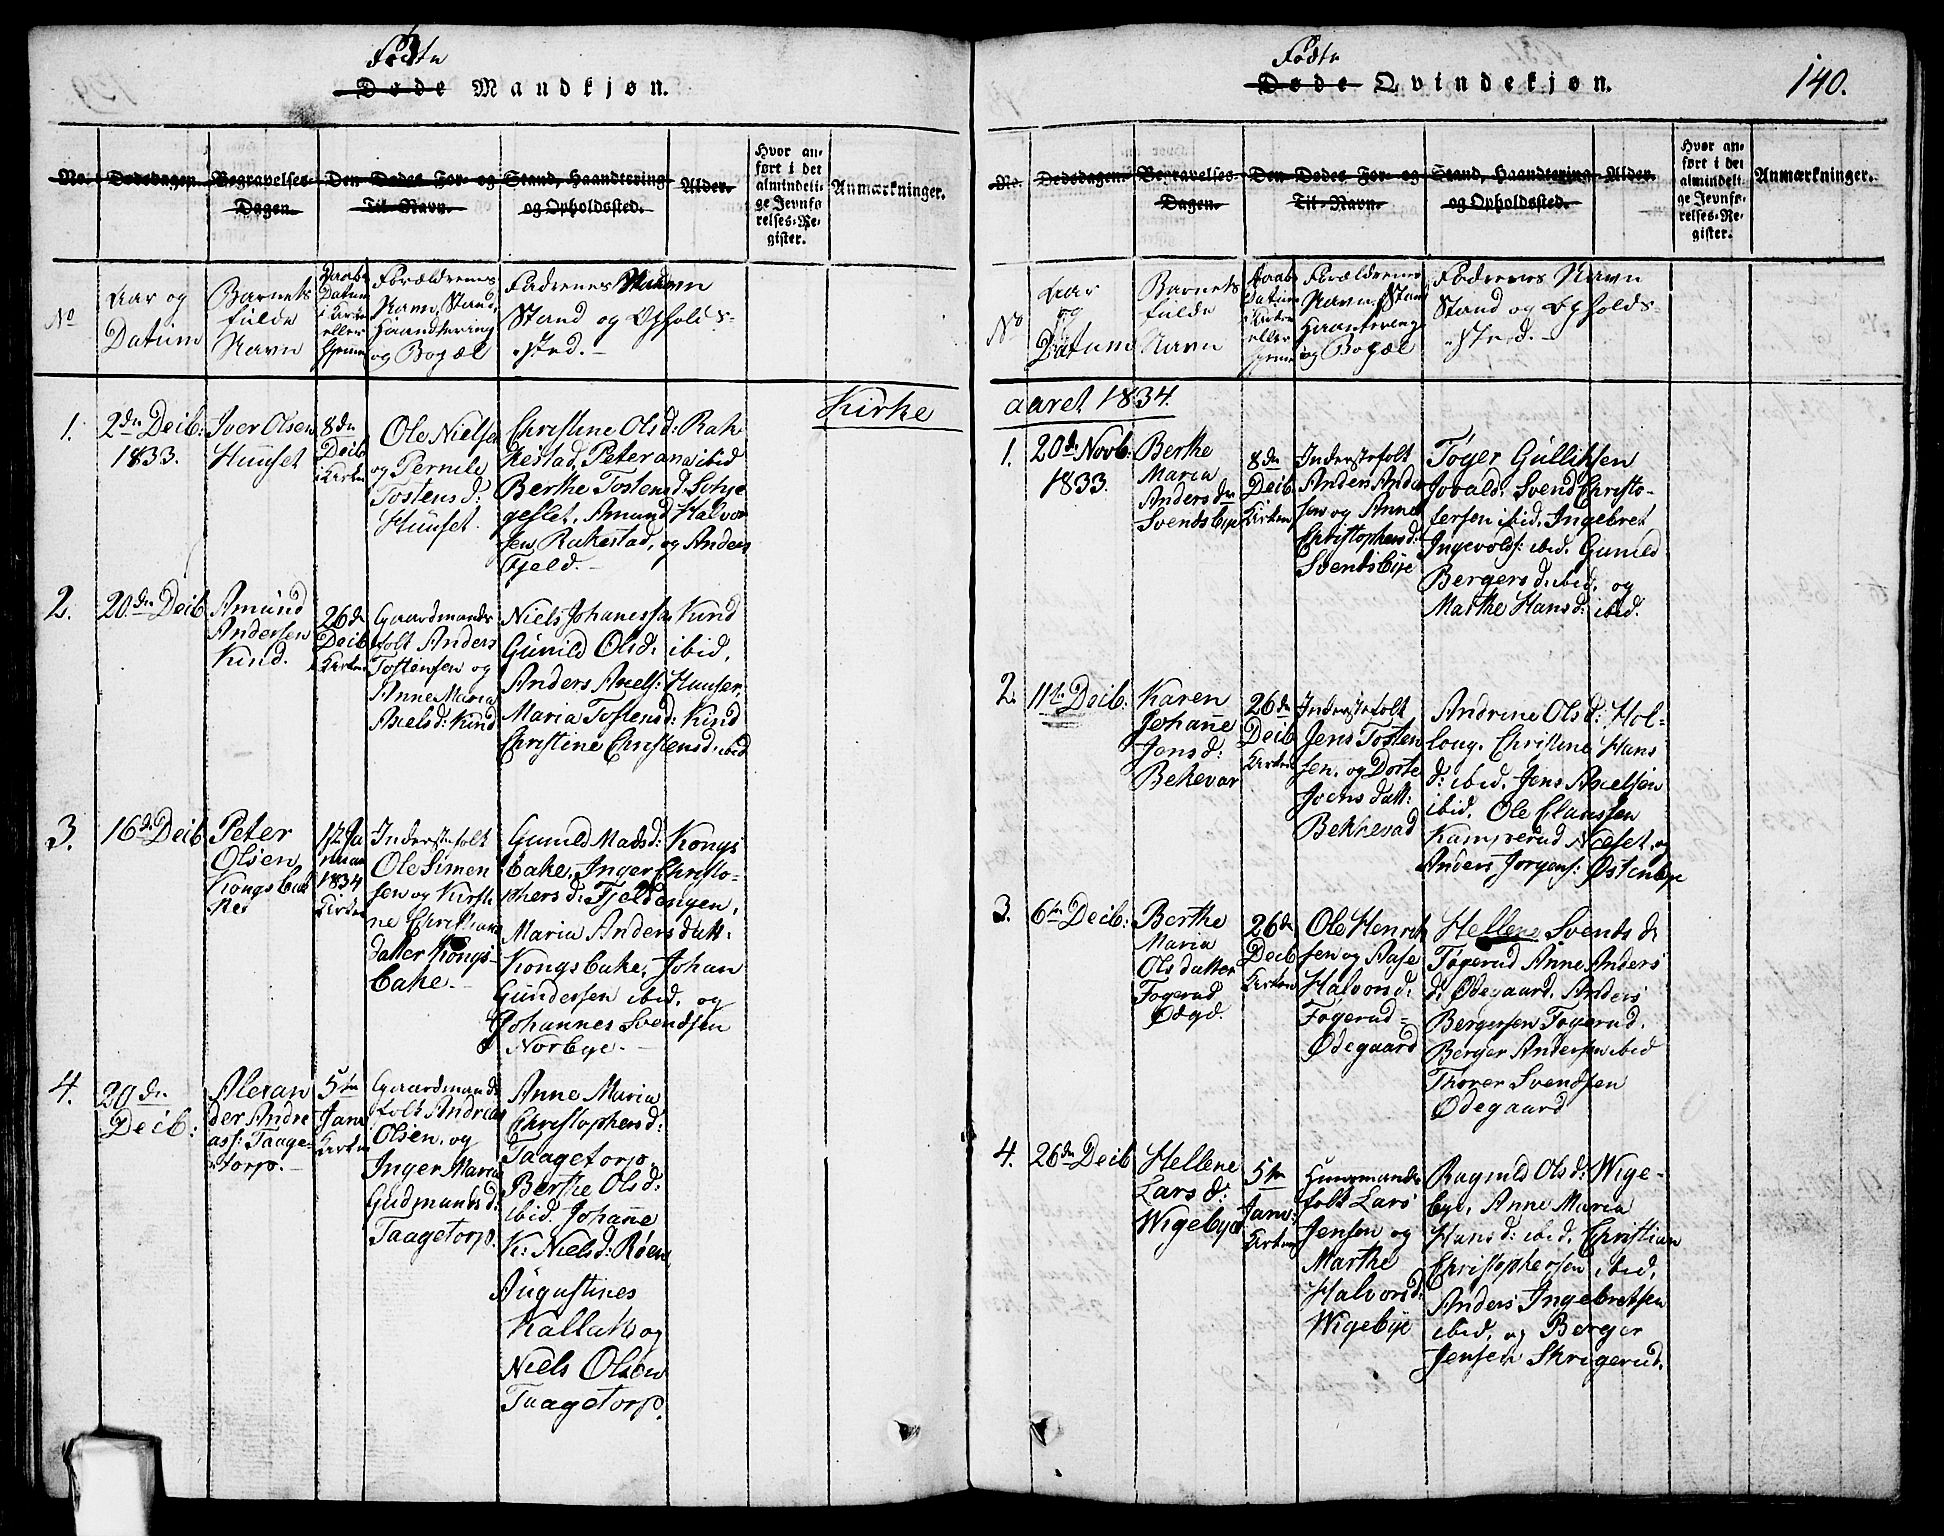 Fødte
Døde Mandkjøn.
No. Dødsdagen. Begravelses-Dagen. Den Dødes For- og Til-Navn. Stand, Haandtering og Opholdssted. Alder. Hvor anført i det almindelige Jevnførelses-Register. Anmærkninger.
No
Aar og
Datum
Barnets
fulde
Navn
Daabs
Datum
i Kirke
eller
hjemme
Forældrenes
Navn, Stand,
Haandtering
og Bopæl
Faddernes Navn
Stand og Opholds-
sted.
Kirke
1.
2den Decb:
1833.
Iver Olsen
Huuset
8de
Decb
i Kirken
Ole Nielsen
og Pernile
Tostensd:
Huuset.
Christine Olsd: Rak
kestad, Peterana ibid
Berthe Tostensd:
geslet, Amund Halvor
sen, Rakestad, og Anders
Fjeld.
2.
20de Decb
Amund
Andersen
Kind.
26de
Decb
Kirken
Gaardmands
folk Anders
Tostensen og
Anne Maria
Axelsd: Kind
Niels Johanessen Kind
Gunild Olsd: ibid,
Anders Axels: Huuser,
Maria Tostensd: Kind
Christine Christensd: ibid
3.
16de Decb
Peter
Olsen
Kongsbak
ke
1ste Ja
nuar
1834
Kirken
Inderstefolk
Ole Simen
sen og Kirsti
ne Christians
datter Kongs-
bake.
Gunild Madsd: Kongs
bake, Inger Christo-
phersd: Fjeldengen,
Maria Andersdatt:
Kongsbake, Johan
Gundersen ibid, og
Johannes Svendsen
Norbye.
4.
20de
Decb:
Alexan
der Andre
ass: Taage-
torp.
5te
Janr
Kirken
Gaardmands
folk Andreas
Olsen, og
Inger Maria
Gudmandsd:
Taagetorp.
Anne Maria
Christophersd:
Taagetorp
Berthe Olsd:
ibid. Johane
K: Nielsd: Røen
Augustines
Kallak og
Niels Olsen
Taagetorp.
Fødte
Døde Qvindekjøn.
140.
No. Dødsdagen. Begravelses-Dagen. Den Dødes For- og Til-Navn. Stand, Haandtering og Opholdssted. Alder. Hvor anført i det almindelige Jevnførelses-Register. Anmærkninger.
No
Aar
og
Datum
Barnets
fulde
Navn
Daabs
Datum
i Kirken
eller
hjemme
Forældrenes
Navn, Stand
Haantering
og Bopæl
Faddernes Navn
Stand og Opholds-
sted.
aaret 1834.
1.
20de Novb:
1833.
Berthe
Maria
Andersdtr
Svendsbye
8de
Decb
Kirken
Inderstefolk
Anders Ander
sen og Anne
Christophersd:
Svendsbye
Tøger Gulliksen
Jovald, Svend Christo-
fersen ibid, Ingebret
Ingevolds: ibid, Gunild
Bergersd: ibid, og
Marthe Hansd: ibid.
2.
11te Decb:
Karen
Johane
Jensd:
Bekevar
26de
Decb
Kirken
Inderstefolk
Jens Tosten
sen, og Dorte
Joensdatt:
Bekkevad
Andrine Olsd: Hol-
loug, Christine Hans
d: ibid, Jens Axelsen
ibid, Ole Claussen
Kamperud Næset, og
Anders Jørgens: Østenbye
3.
6te Decb:
Berthe
Maria
Olsdatter
Fogerud
Ødegd.
26de
Decb
Kirken
Ole Henrik
sen og Aase
Halvorsd:
Føgerud-
Ødegaard
Hellene Svendsd:
Føgerud Anne Anders
d: Ødegaard, Anders
Bergersen Føgerud,
Berger Andersen ibid
Thorer Svendsen
Ødegaard
4.
26de Decb
Hellene
Larsd:
Wigebye
5te
Janr:
Kirken
Huusmands
folk Lars
Jensen og
Marthe
Halvorsd:
Wigebye
Ragnild Olsd: Wige-
bye, Anne Maria
Hansd: ibid, Christian
Christophersen ibid,
Anders Ingebretsen
ibid, og Berger
Jensen Skrigerud.